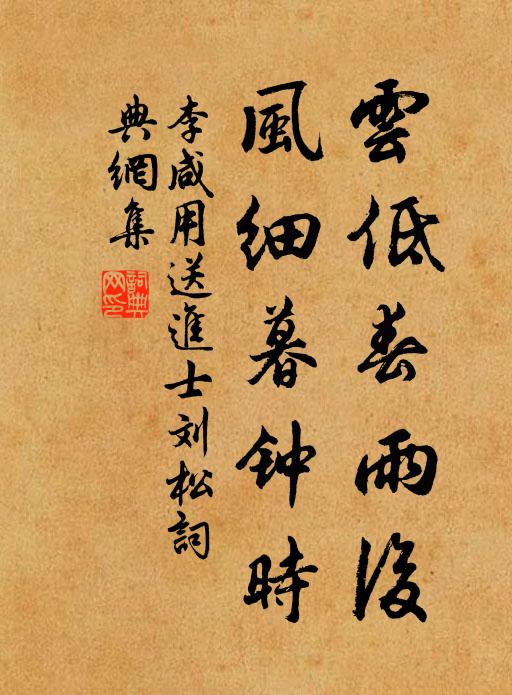 雲低春雨後
風细暮钟時
李咸用送進士刘松詞
典網集
詞典网印